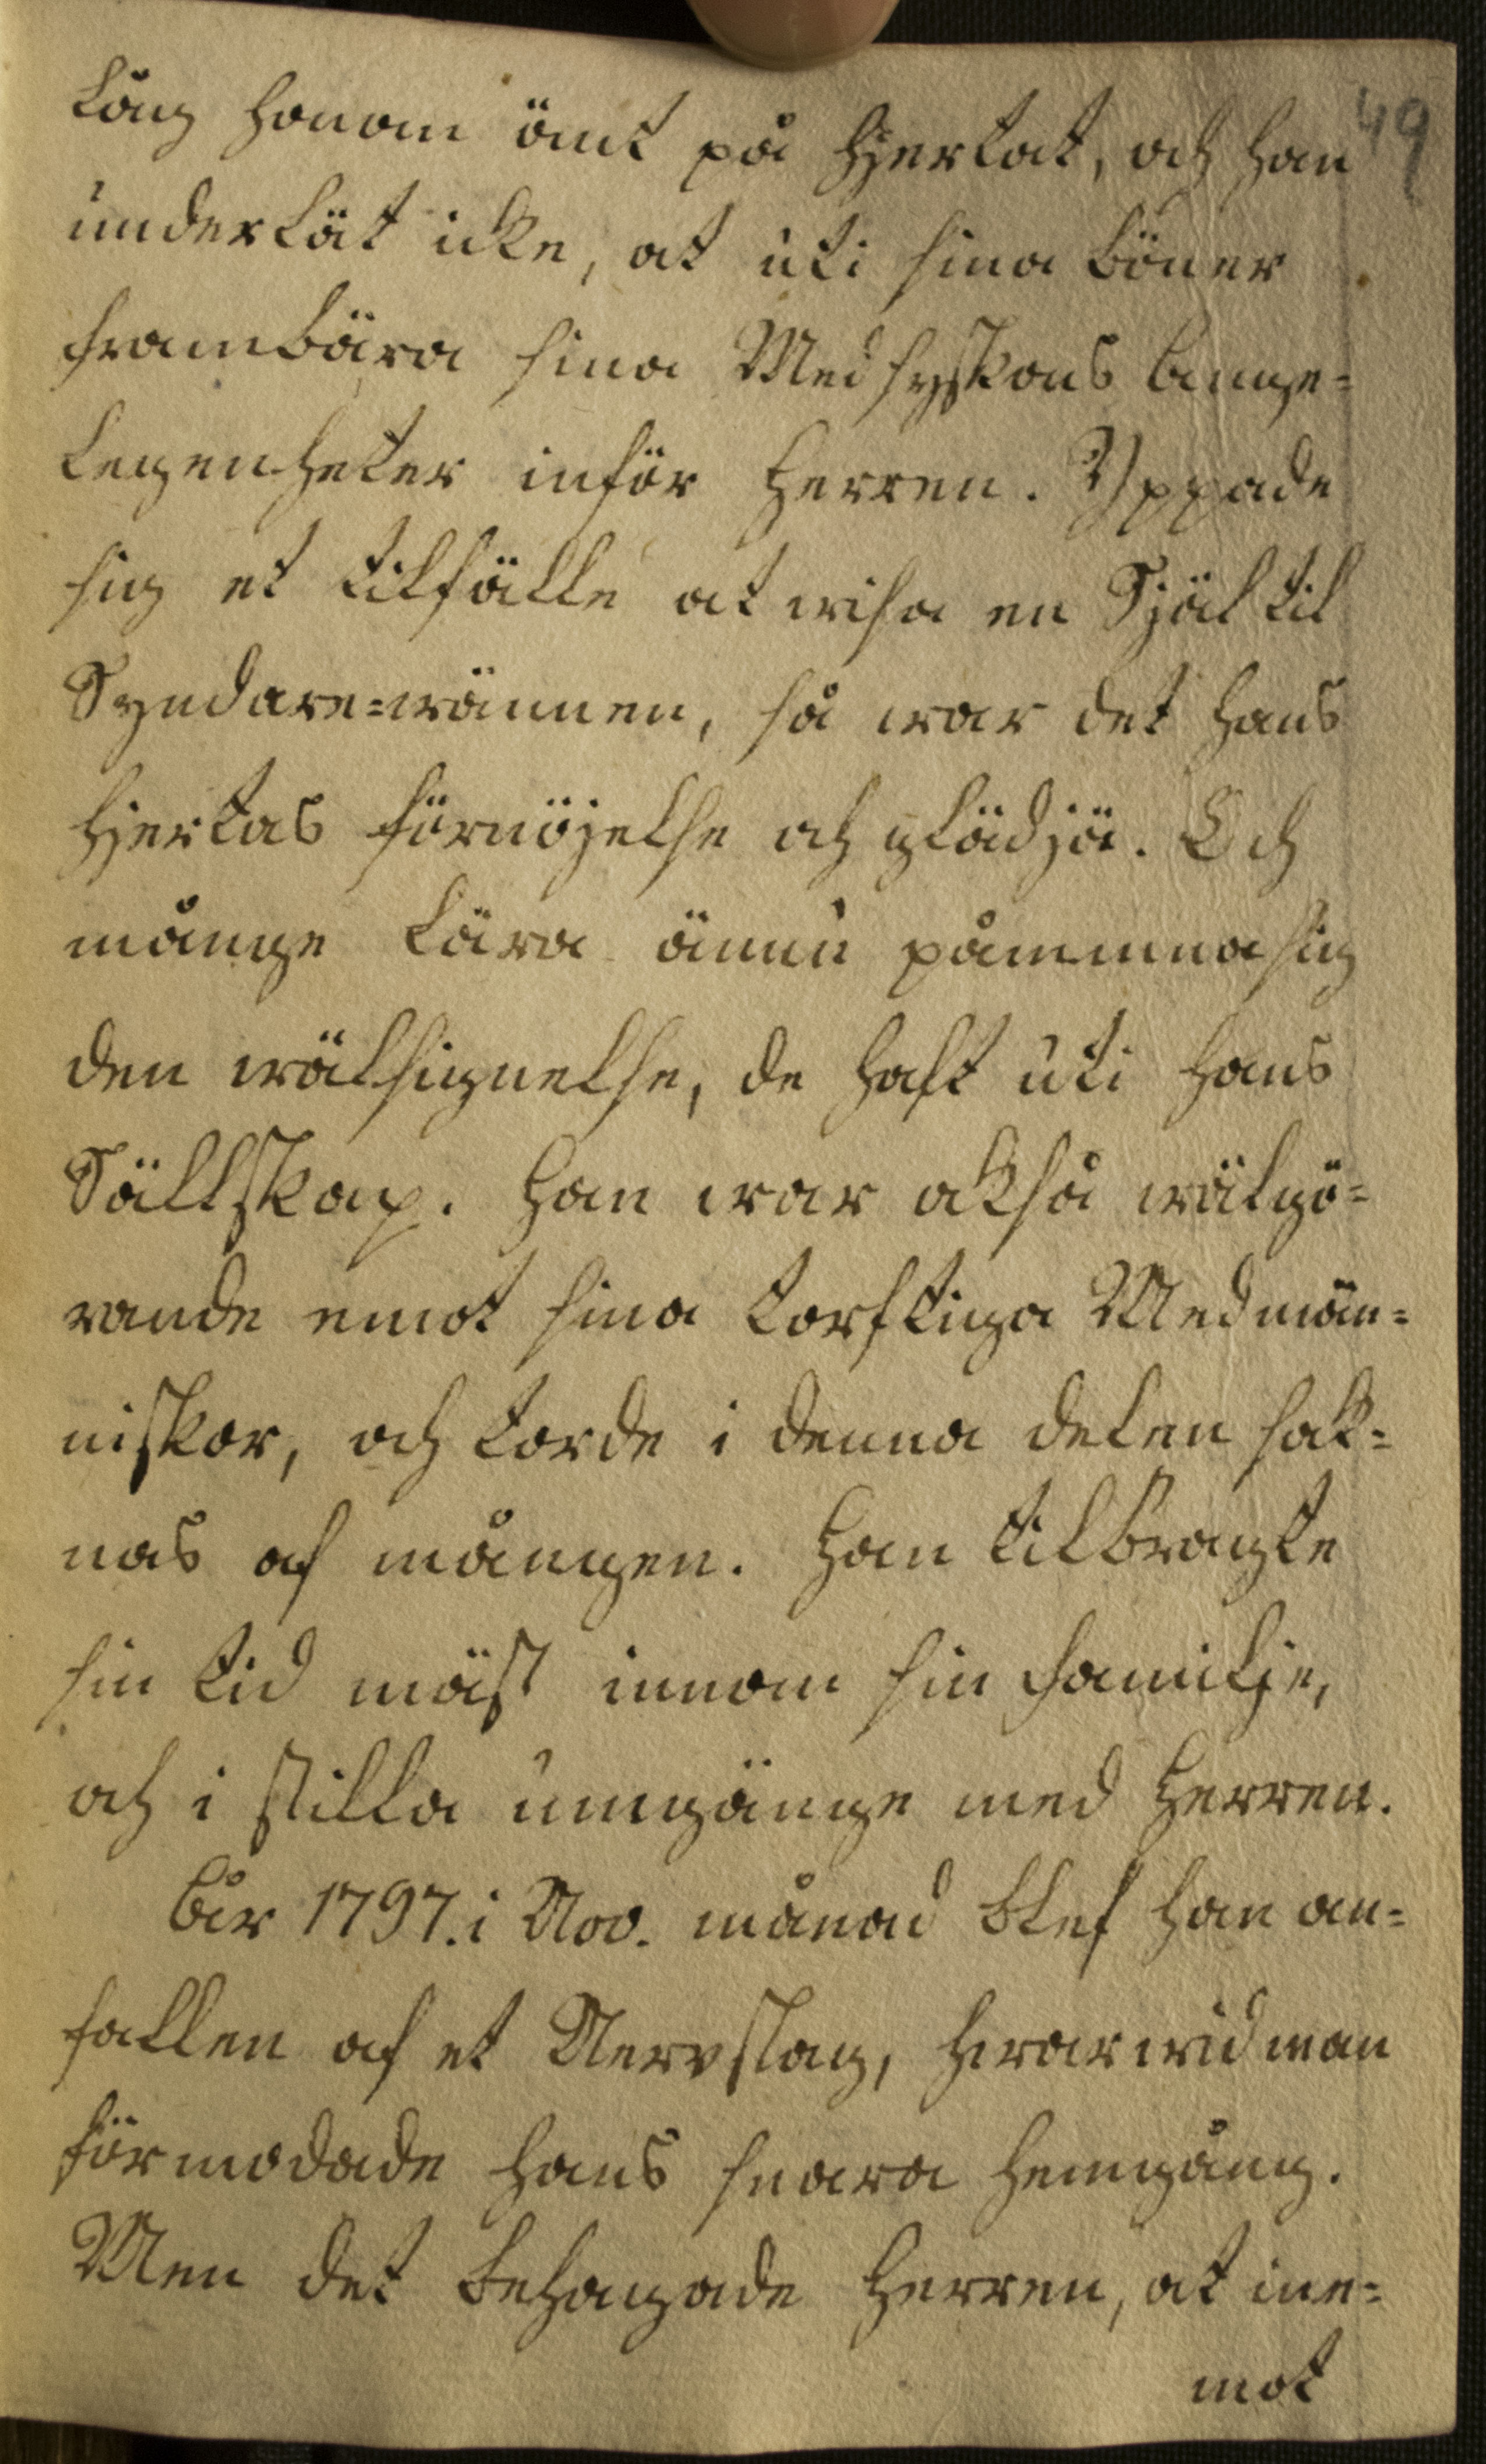 49
låg honom ömt på Hjertat, och han
underlät icke, at uti sina böner
frambära sina Medsyskons ange=
legenheter inför Herren. Yppade
sig et tilfälle at wisa en Själ til
Syndare=wännen, så war det hans
Hjertas förnöjelse och glädje. Och
månge lära ännu påminna sig
den wälsignelse, de haft uti hans
Sällskap. Han war också wälgö=
rande emot sina torftiga Medmän=
niskor, och torde i denna delen sak=
nas af mången. Han tilbragte
sin tid mäst innom sin familje,
och i stilla umgänge med Herren.
År 1797. i Nov. månad blef han an=
fallen af et Nervslag, hwarwid man
förmodade hans snara hemgång.
Men det behagade Herren, at ine=
mot